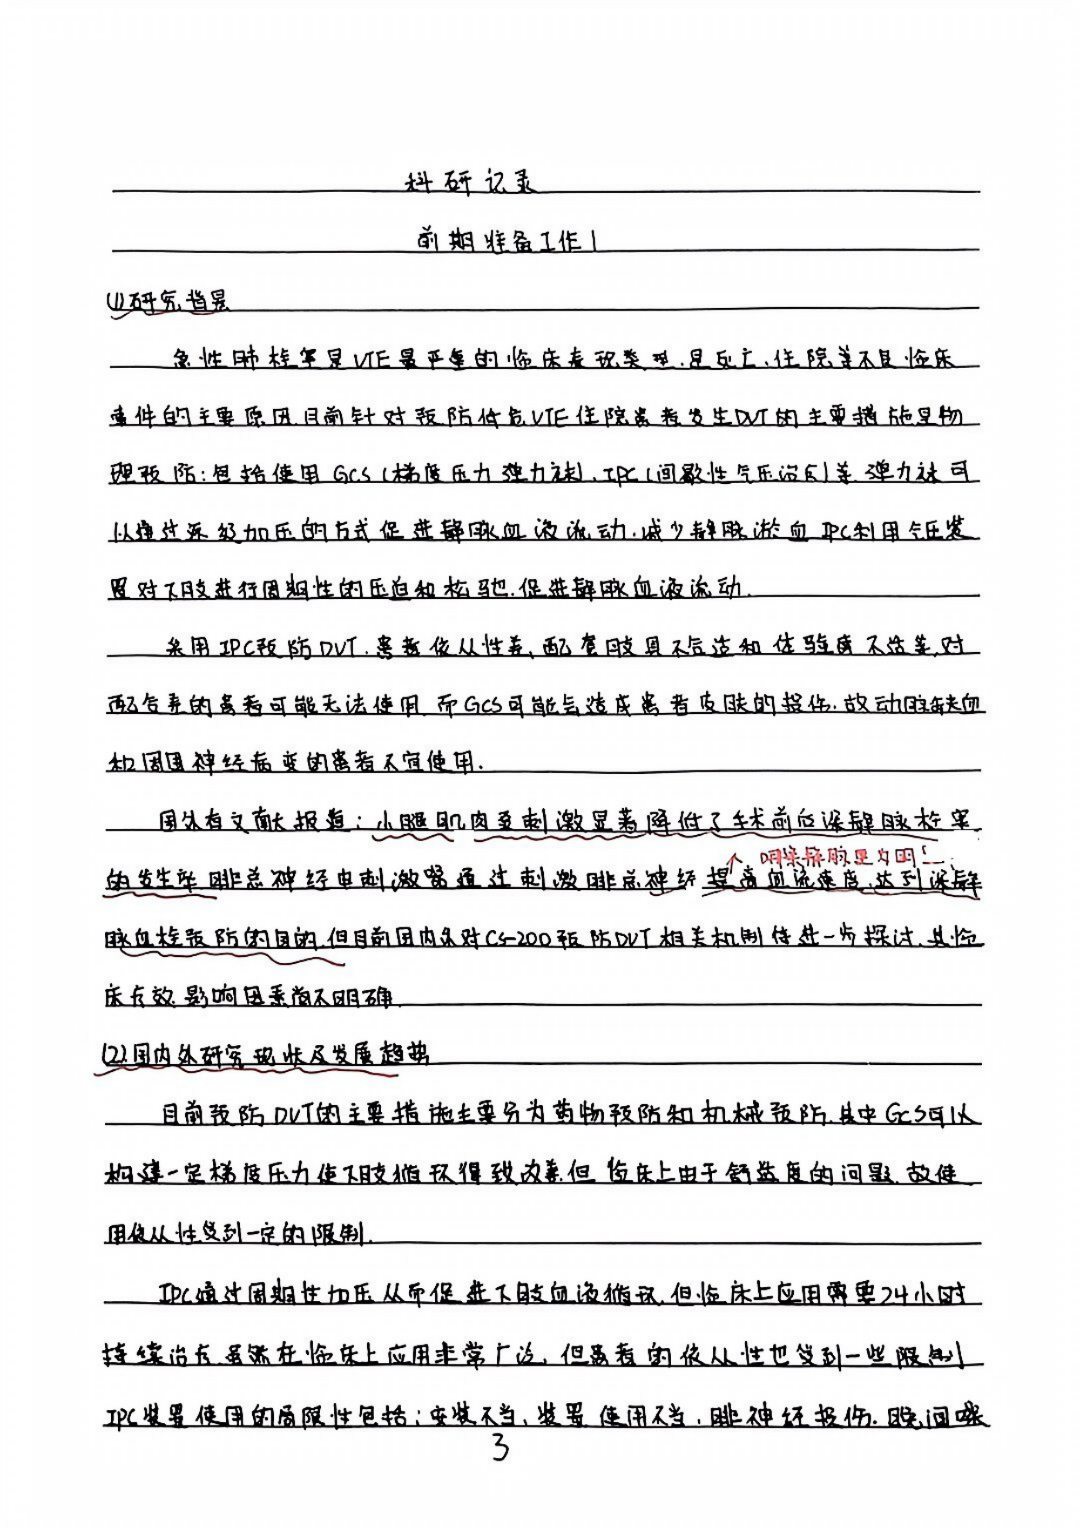 科研记录
前期准备工作1
(1)研究背景
急性肺栓塞是VTE最严重的临床表现类型.是死亡、住院等不良临床
事件的主要原因.目前针对预防低危VTE住院患者发生DVT的主要措施是物
理预防:包括使用GCS(梯度压力弹力袜).IPC(间歇性气压治疗)等.弹力袜可
以通过逐级加压的方式促进静脉血液流动.减少静脉淤血.IPC利用气压装
置对下肢进行周期性的压迫和松弛.促进静脉血液流动.
采用IPC预防DVT.患者依从性差、配套肢具不合适和体验度不佳等.对
配合差的患者可能无法使用.而GCS可能会造成患者皮肤的损伤.故动脉缺血
和周围神经病变的患者不宜使用.
国外有文献报道:小腿肌肉泵刺激显著降低了手术前后深静脉栓塞
的发生率.腓总神经电刺激器通过刺激腓总神经提高血流速度.达到深静
脉血栓预防的目的.但目前国内外对CS-200预防DVT相关机制待进一步探讨.其临
床疗效.影响因素尚不明确.
(2)国内外研究现状及发展趋势
目前预防DVT的主要措施主要分为药物预防和机械预防.其中GCS可以
构建一定梯度压力使下肢循环得到改善.但临床上由于舒适度的问题.故使
用依从性受到一定的限制.
IPC通过周期性加压从而促进下肢血液循环.但临床上应用需要24小时
持续治疗.虽然在临床上应用非常广泛,但患者的依从性也受到一些限制
IPC装置使用的局限性包括:安装不当、装置使用不当、腓神经损伤.晚间噪
3